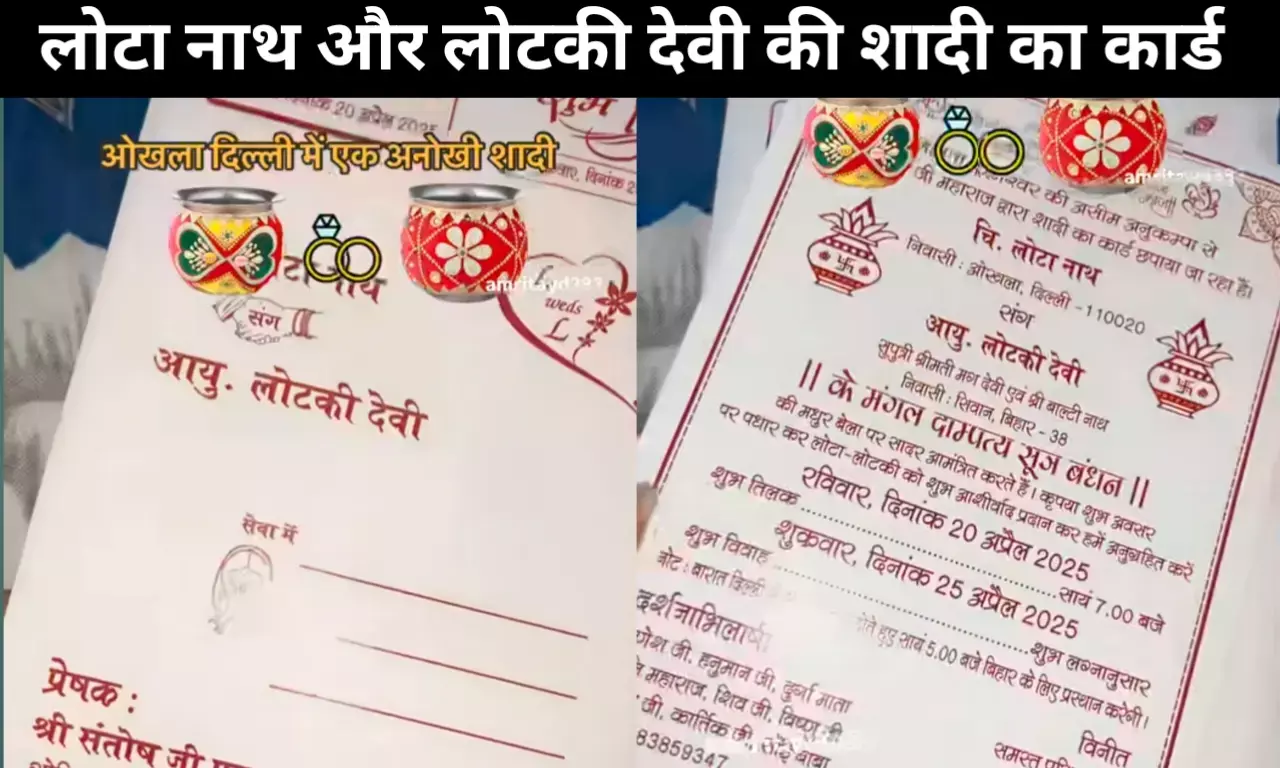 लोटा नाथ और लोटकी देवी की शादी का कार्ड
20 अप्रैल 2025
ओखला दिल्ली में एक अनोखी शादी
दिनांक
नाथ
संग
weds
L
आयु. लोटकी देवी
सेवा में
प्रेषक :
श्री संतोष जी
की असीम अनुकम्पा से
जी महाराज द्वारा शादी का कार्ड छपाया जा रहा है।
चि. लोटा नाथ
निवासी : ओखला, दिल्ली -110020
संग
आयु. लोटकी देवी
सुपुत्री श्रीमती मग देवी एवं श्री बाल्टी नाथ
निवासी : सिवान, बिहार - 38
|| के मंगल दाम्पत्य सूत्र बंधन ||
की मधुर बेला पर सादर आमंत्रित करते हैं। कृपया शुभ अवसर
पर पधार कर लोटा-लोटकी को शुभ आशीर्वाद प्रदान कर हमें अनुग्रहित करें
रविवार, दिनांक 20 अप्रैल 2025
शुभ तिलक ........................ सायं 7.00 बजे
शुक्रवार, दिनांक 25 अप्रैल 2025
शुभ विवाह ........................ शुभ लग्नानुसार
नोट : बारात दिल्ली होते हुए सायं 5.00 बजे बिहार के लिए प्रस्थान करेगी।
दर्शनाभिलाषी
जी, हनुमान जी, दुर्गा माता
महाराज, शिव जी, विष्णु जी
जी, कार्तिक जी, साईं बाबा
83859347
विनीत
समस्त